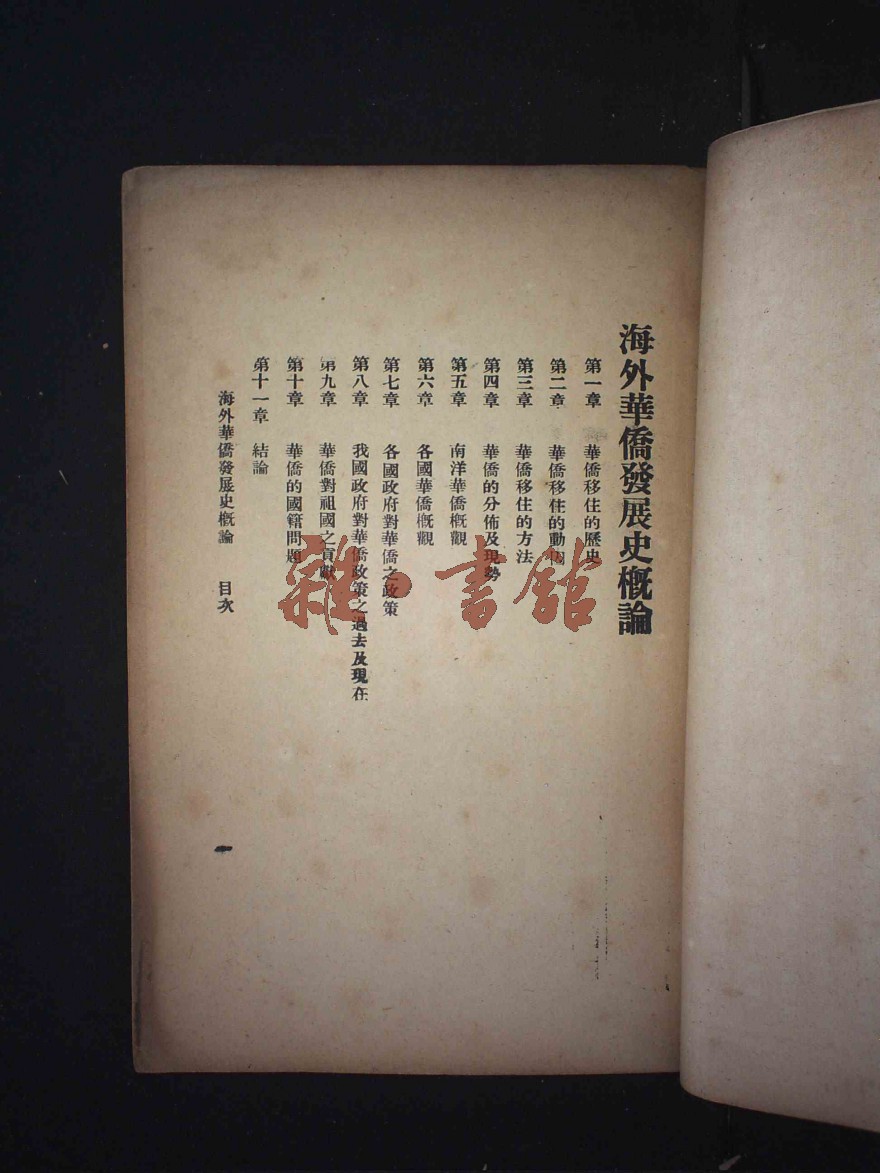 海外華僑發展史概論
第一章 華僑移住的歷史
第二章 華僑移住的動因
第三章 華僑移住的方法
第四章 華僑的分佈及現勢
第五章 南洋華僑概觀
第六章 各國華僑概觀
第七章 各國政府對華僑之政策
第八章 我國政府對華僑政策之過去及現在
第九章 華僑對祖國之貢獻
第十章 華僑的國籍問題
第十一章 結論
海外華僑發展史概論 目次
一
雜·書館